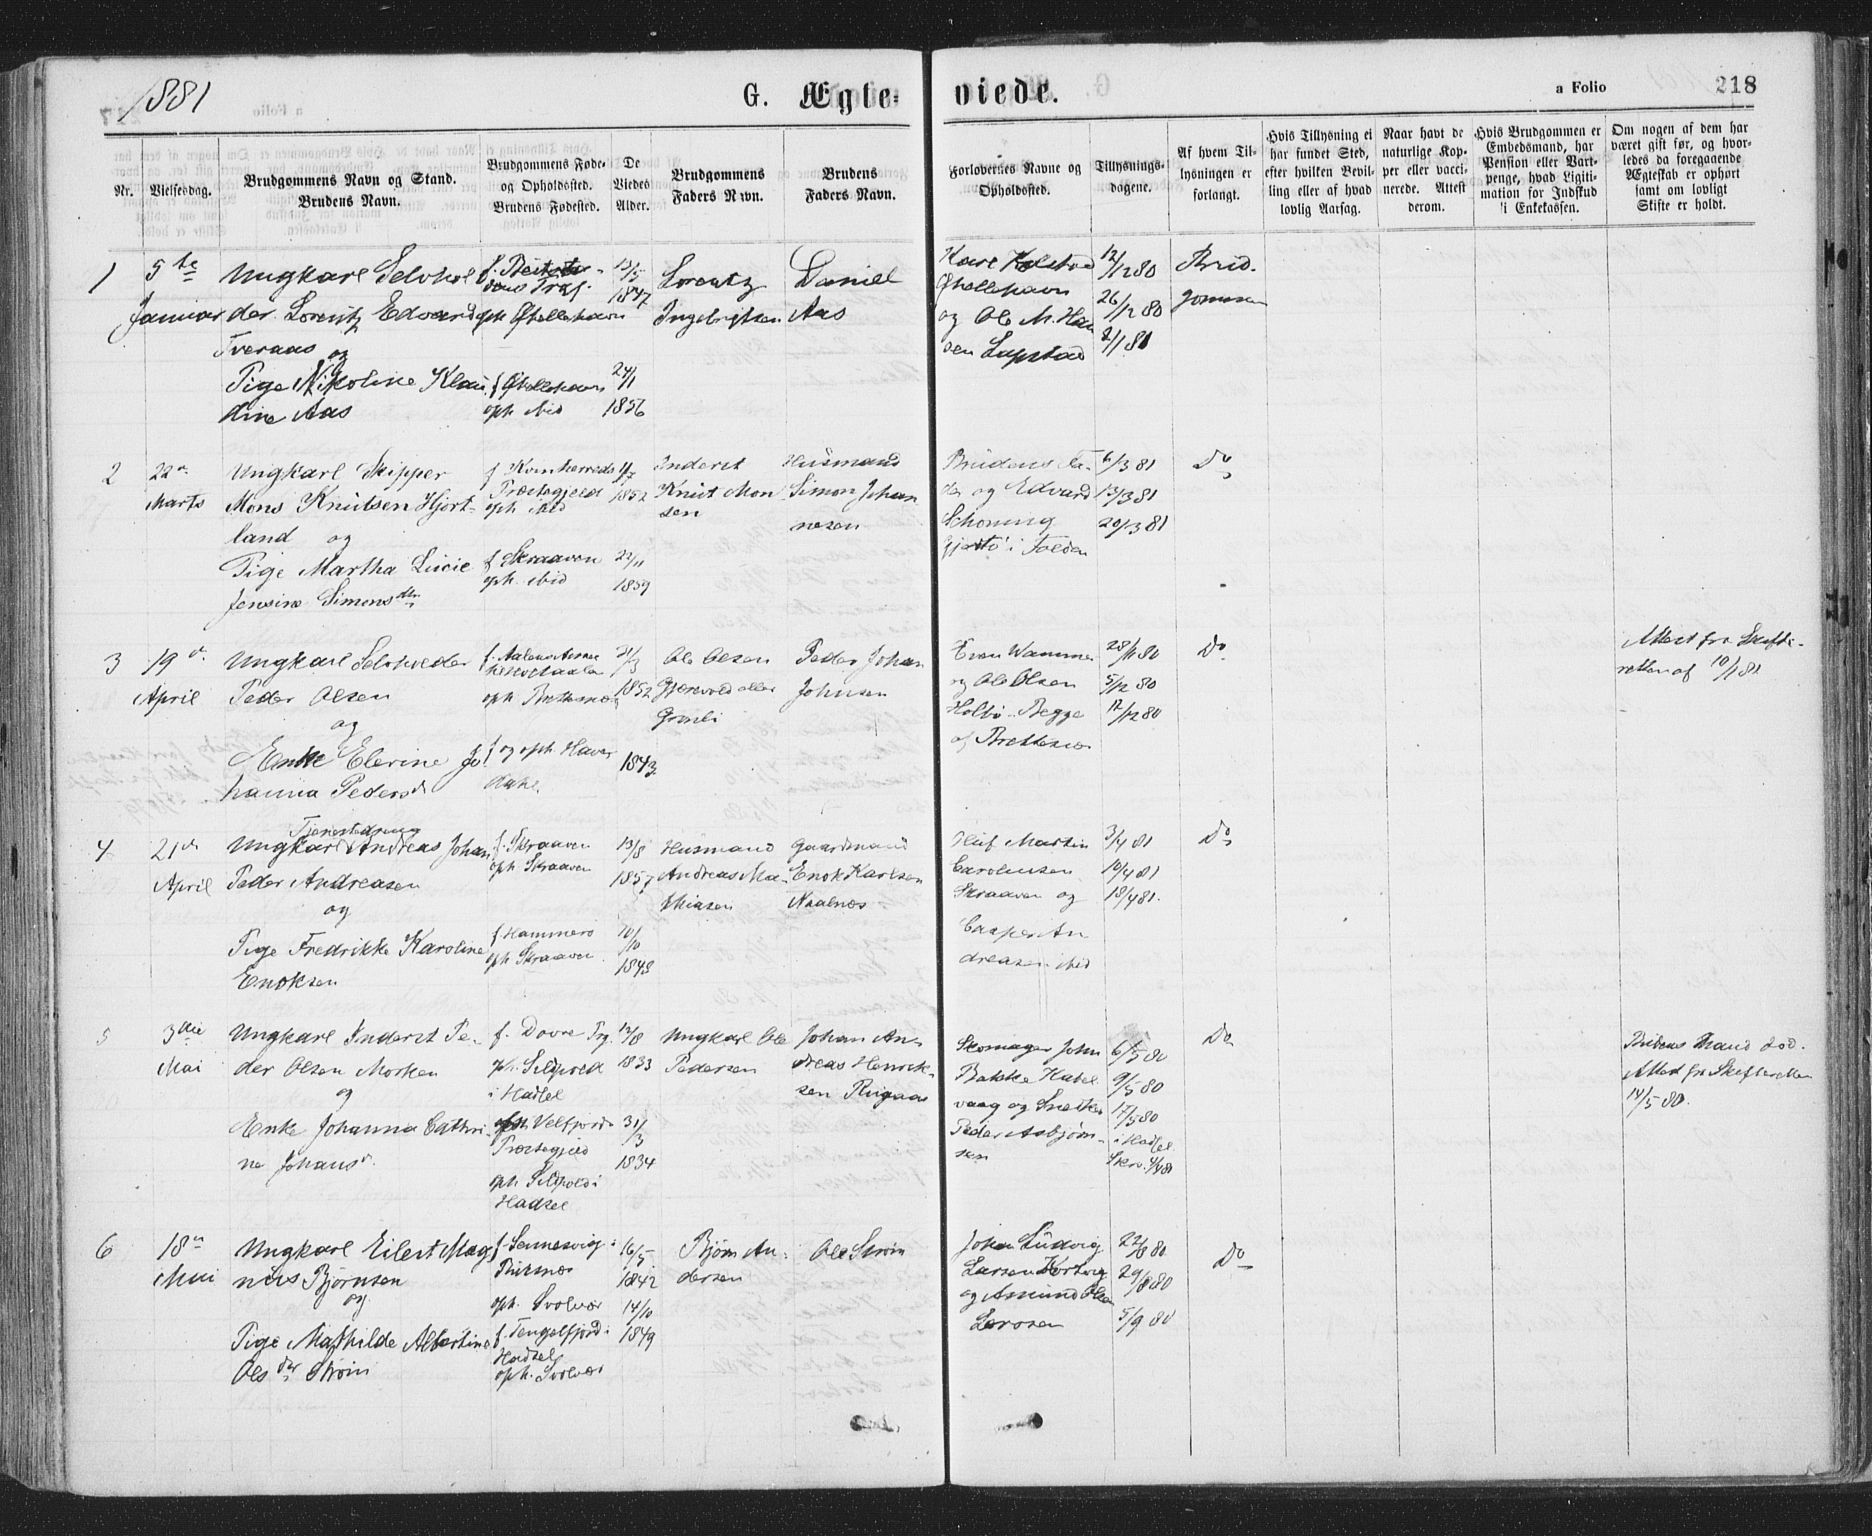 1881
G. Ægte- viede.
a Folio 218
Nr.
Vielsesdag.
Brudgommens Navn og Stand.
Brudens Navn.
Brudgommens Føde-
og Opholdssted.
Brudens Fødested.
De
Viedes
Alder.
Brudgommens
Faders Navn.
Brudens
Faders Navn.
Forlovernes Navne og
Opholdssted.
Tillysnings-
dagene.
Af hvem Til-
lysningen er
forlangt.
Hvis Tillysning ei
har fundet Sted,
efter hvilken Bevil-
ling eller af hvad
lovlig Aarsag.
Naar havt de
naturlige Kop-
per eller vacci-
nerede. Attest
derom.
Hvis Brudgommen er
Embedsmand, har
Pension eller Vart-
penge, hvad Legiti-
mation for Indskud
i Enkekassen.
Om nogen af dem har
været gift før, og hvor-
ledes da foregaaende
Ægteskab er ophørt
samt om lovligt
Skifte er holdt.
1
5te
Januar
Ungkarl Selvhol
der Lorentz Edvard
Tveraas
og
Pige Nikoline Klau
dine Aas
oph Øhellehavn
f Øhellehavn
oph ibid
13/5
1847
24/1
1856
Lorentz
Ingebrigtsen
Daniel
Aas
Karl Kolstad
Øhellehavn
og Ole M. Han
sen Lupstad
12/12 80
26/12 80
2/1 81
Brud
gommen
2
22n
Marts
Ungkarl Skipper
Mons Knutsen Hjort-
land og
Pige Martha Lucie
Jensine Simonsdtr
f Kvinherreds
Præstegjeld
oph ibid
f Skraaven
oph ibid
1852
22/11
1859
Inderst
Knut Mon
sen
Husmand
Simon Johan
nesen
Brudens Fa-
der og Edvard
Schøning
i Folden
6/3 81
13/3 81
20/3 81
Do
3
19d
April
Ungkarl Selvholder
Peder Olsen
og
Enke Elerine Jo
hanna Pedersd
oph Brettesnæs
f og oph Haver
21/3
1852
1843.
Ole Olsen
Gjersvold eller
Grønli
Peder Johan
Johnsen
Even Wamme
og Ole Olsen
Holbø. Begge
af Brettesnæs
28/11 80
5/12 80
12/12 80
Do
Attest fra Skifte-
retten af 10/1 81
4
21d
April
Tjenestedreng
Ungkarl Andreas Johan
Peder Andreasen
og
Pige Fredrikke Karoline
Enoksen
f. Skraaven
oph Skraaven
f Hammerø
oph Skraaven
13/8
1857
10/10
1848
Husmand
Andreas Ma-
thiasen
Gaardmand
Enok Karlsen
Naalnæs
Oluf Martin
Carolinsen
Skraaven og
Casper An
dreasen ibid
3/4 81
10/4 81
18/4 81.
Do
5
3die
Mai
Ungkarl Inderst Pe-
der Olsen Morken
og
Enke Johanna Cathri-
ne Johansd.
f. Dovre Prg.
oph. Sildpold
i Hadsel
Velfjord
Præstegjeld
oph Sildpold i
Hadsel
12/8
1833
31/3
1834
Ungkarl Ole
Pedersen
Johan An-
dreas Henrik-
sen Ringaas
Skomager John
Bakke Kabel
vaag og Snekker
Peder Asbjørn-
sen
6/5 80
9/5 80
17/5 80
i Hadsel
Do
Brudens Mand død.
Attest fra Skifteretten
14/5 80.
6
18n
Mai
Ungkarl Eilert Mag
nus Bjørnsen
og
Pige Mathilde Albertine
Olsdtr Strøm
f. Sennesvig i
Buksnæs
oph. Svolvær
f. Tengelfjord i
Hadsel
oph. Svolvær
16/5
1842
14/10
1849
Bjørn An-
dersen
Ole Strøm
Johan Ludvig
Larsen Kortvig
og Amund Olsen
Lorosen
22/8 80
29/8 80
5/9 80
Do